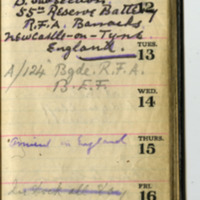 D. Subsection
55th Reserve Battery
R.F.A. Barracks
Newcastle-on-Tyne
England.
12
TUES.
13
A/124 Bgde. R.F.A.
B.E.F.
WED.
14
THURS.
15
in England
FRI.
16